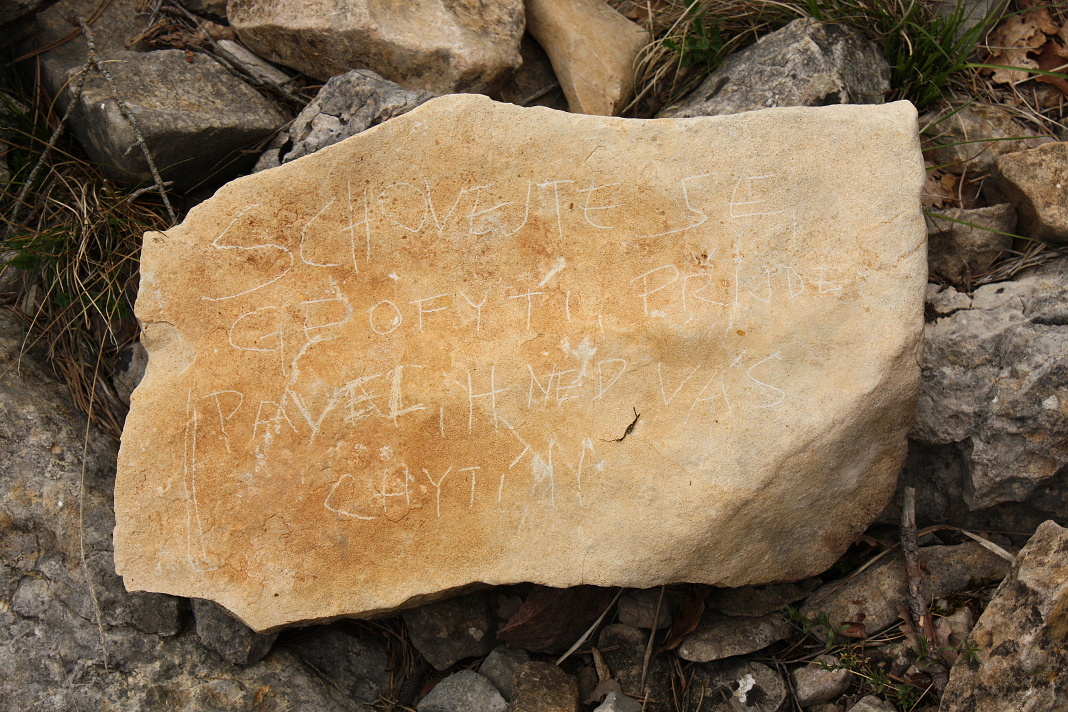 SCHOVEJTE SE,
GEOFYTI, PRIJDE
PAVEL, IHNED VÁS
CHYTI